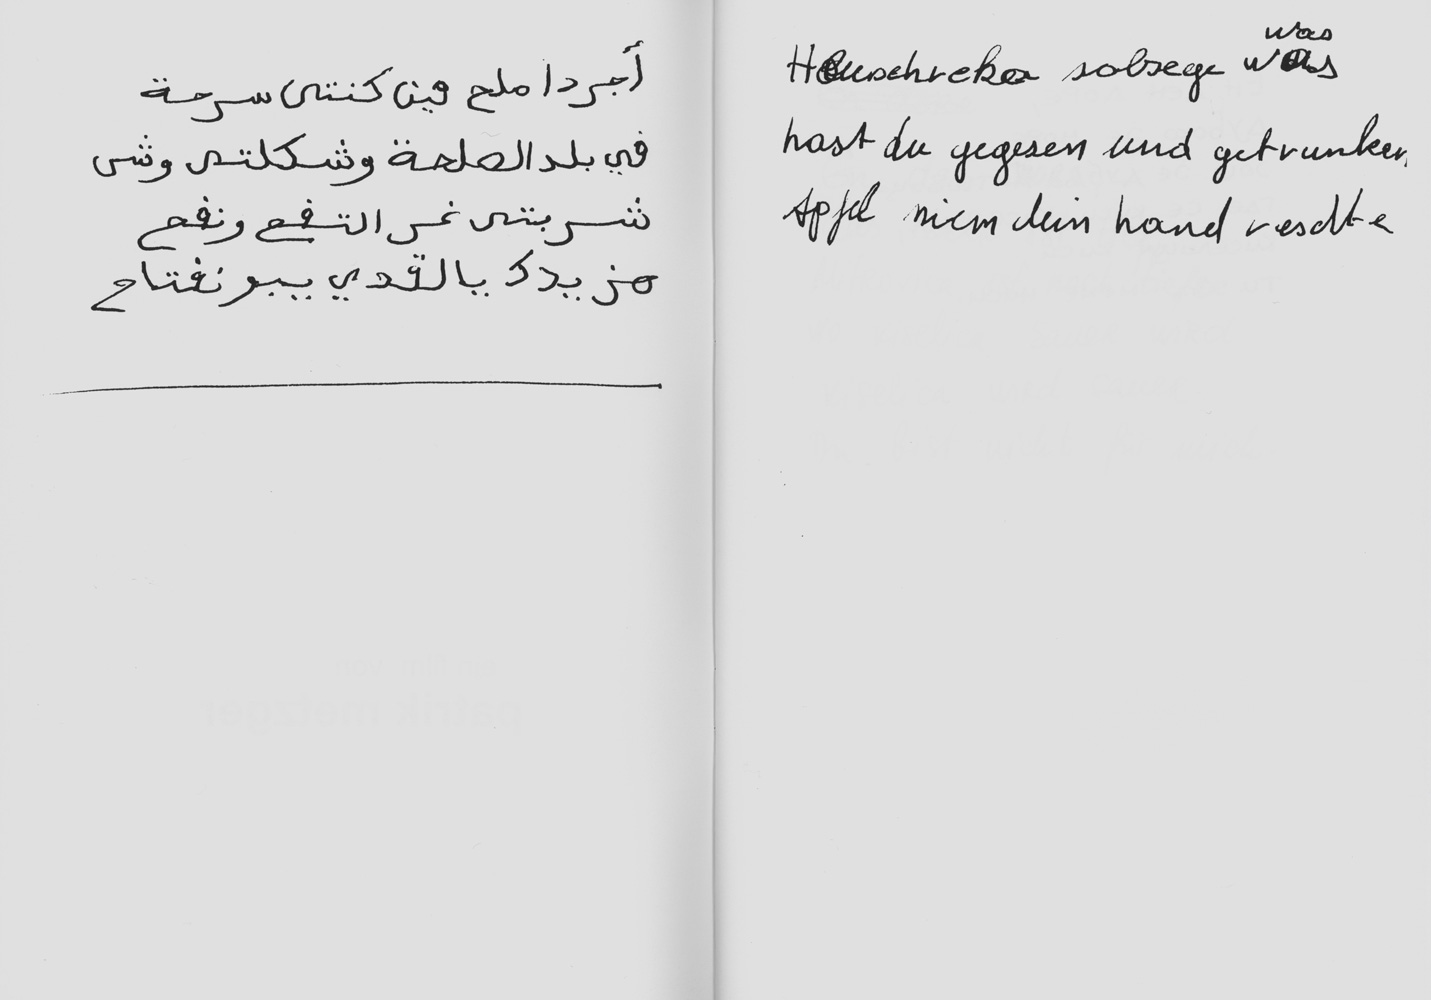 أجردا ملح فين كنتى سرحة
في بلد الصلحة وشكلتى وشى
شربتى غر التفح ونفح
مز يدك بالقدي يبو نفتاح
was
Heuschreke salzege was
hast du gegesen und getrunken
Apfel niem dein hand reschte
patrik metzger